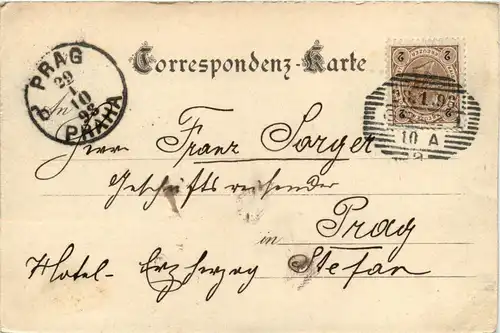 Correspondenz-Karte
PRAG
29
1
10
98
PRAHA
2
2
1.9
10 A
An
Herrn Franz Sorger
Geschäftsreisender
in Prag
Hotel- Erzherzog Stefan